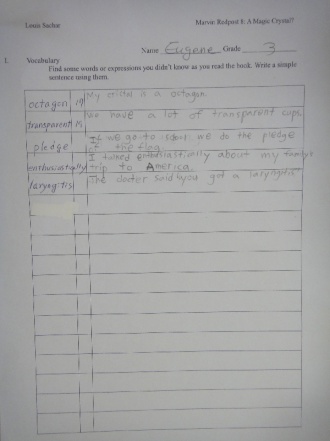 Louis Sachar Marvin Redpost 8: A Magic Crystal?
Name Eugene Grade 3
1. Vocabulary
Find some words or expressions you didn't know as you read the book. Write a simple
sentence using them.
octagon 17 My cristal is a octagon.
transparent We have a lot of transparent cups.
pledge If we go to we do the pledge
of the flag.
enthusiastically I talked enthusiastically about my family's
trip to America.
laryngitis The doctor said you got a laryngitis."